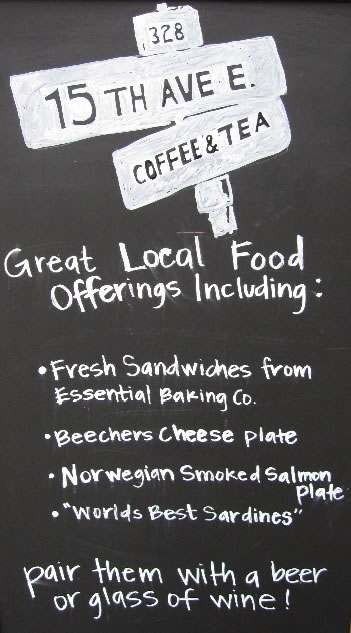 328
15TH AVE E.
COFFEE & TEA
Great Local Food
Offerings Including:
• Fresh Sandwiches from
Essential Baking Co.
• Beechers Cheese plate
• Norwegian Smoked Salmon
plate
• "Worlds Best Sardines"
pair them with a beer
or glass of wine!